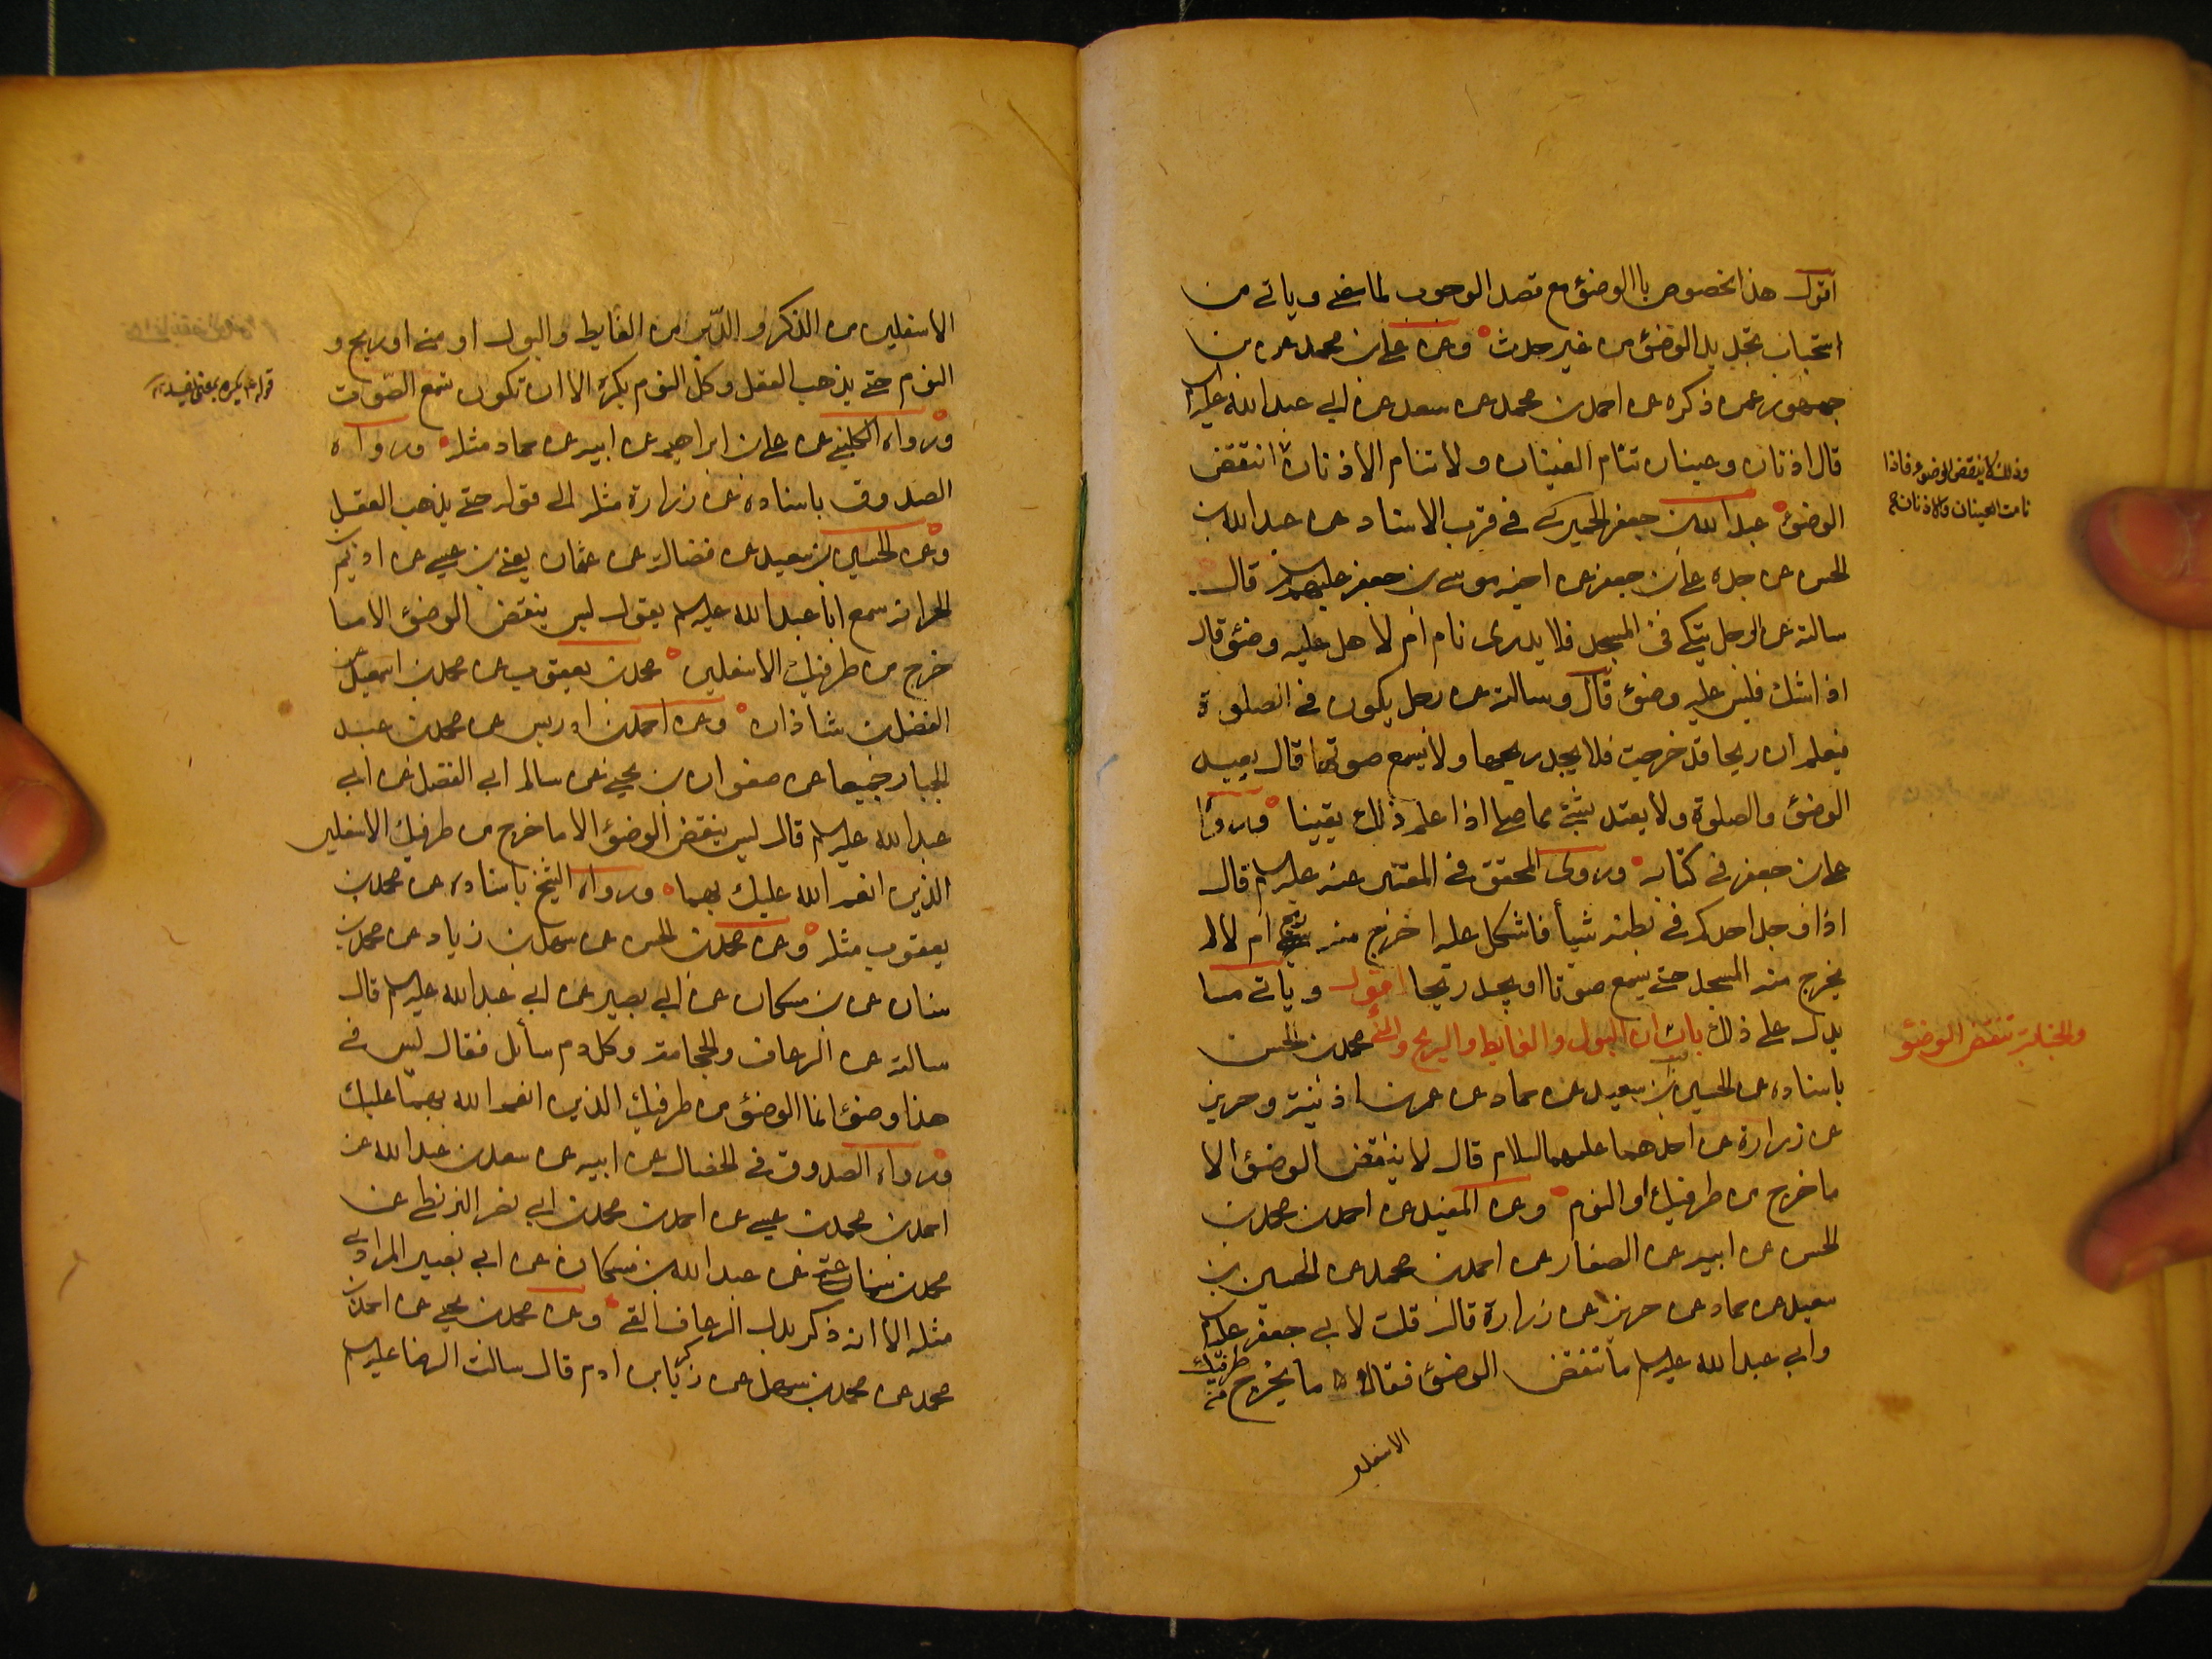 اقول هذا مخصوص بالوضوء مع قصد الوجوب لما مضى وياتي من
استحباب تجديد الوضوء من غير حدث وعن علي بن محمد عن بن
جمهور عمن ذكره عن احمد بن محمد عن سعد عن ابي عبد الله عليه السلام
قال اذنان وعينان تنام العينان ولا تنام الاذنان انتقض
وذلك لا ينقض الوضوء فاذا
نامت العينان والاذنان
الوضوء عبد الله بن جعفر الحميري في قرب الاسناد عن عبد الله بن
الحسن عن جده علي بن جعفر عن اخيه موسى بن جعفر عليهما السلام قال
سالته عن الرجل يتكي في المسجد فلا يدرى نام ام لا هل عليه وضوء قال
اذا شك فليس عليه وضوء قال وسالته عن رجل يكون في الصلوة
فيعلم ان ريحا قد خرجت فلا يجد ريحها ولا يسمع صوتها قال يعيد
الوضوء والصلوة ولا يعتد بشئ مما صلى اذا علم ذلك يقينا ورواه
علي بن جعفر في كتابه وروى المحقق في المعتبر عنه عليه السلام قال
اذا وجد احدكم في بطنه شيأ فاشكل عليه اخرج منه شئ ام لا لم
يخرج من المسجد حتى يسمع صوتا او يجد ريحا اقول وياتي ما
يدل على ذلك باب ان البول والغايط والريح والمني محمد بن الحسن
والجنابة تنقض الوضوء
باسناده عن الحسين بن سعيد عن حماد عن عمر بن اذينة وحريز
عن زرارة عن احدهما عليهما السلام قال لا ينقض الوضوء الا
ما خرج من طرفيك او النوم وعن المفيد عن احمد بن محمد بن
الحسن عن ابيه عن الصفار عن احمد بن محمد عن الحسين بن
سعيد عن حماد عن حريز عن زرارة قال قلت لابي جعفر عليه السلام
وابي عبد الله عليه السلام ما تنقض الوضوء فقالا ما يخرج من طرفيك
الاسفلين
الاسفلين من الذكر والدبر من الغايط والبول او مني او ريح و
النوم حتى يذهب العقل وكل النوم يكره الا ان تكون تسمع الصوت
ورواه الكليني عن علي بن ابراهيم عن ابيه عن حماد مثله ورواه
الصدوق باسناده عن زرارة مثله الى قوله حتى يذهب العقل
وعن الحسين بن سعيد عن فضالة عن عثمان يعني بن عيسى عن اديم
الحر انه سمع ابا عبد الله عليه السلام يقول ليس ينقض الوضوء الا ما
خرج من طرفيك الاسفلين محمد بن يعقوب عن محمد بن اسمعيل عن
الفضل بن شاذان وعن احمد بن ادريس عن محمد بن عبد
الجبار جميعا عن صفوان بن يحيى عن سالم ابي الفضل عن ابي
عبد الله عليه السلام قال ليس ينقض الوضوء الا ما خرج من طرفيك الاسفلين
الذين انعم الله عليك بهما ورواه الشيخ باسناده عن محمد بن
يعقوب مثله وعن محمد بن الحسن عن سهل بن زياد عن محمد بن
سنان عن بن مسكان عن ابي بصير عن ابي عبد الله عليه السلام قال
سالته عن الرعاف والحجامة وكل دم سائل فقال ليس في
هذا وضوء انما الوضوء من طرفيك الذين انعم الله بهما عليك
ورواه الصدوق في الخصال عن ابيه عن سعد بن عبد الله عن
احمد بن محمد بن عيسى عن احمد بن محمد بن ابي نصر البزنطي عن
محمد بن سنان عن عبد الله بن مسكان عن ابي بصير المرادي
مثله الا انه ذكر بدل الرعاف القئ وعن محمد بن يحيى عن احمد بن
محمد عن محمد بن سهل عن زكريا بن ادم قال سالت الرضا عليه السلام